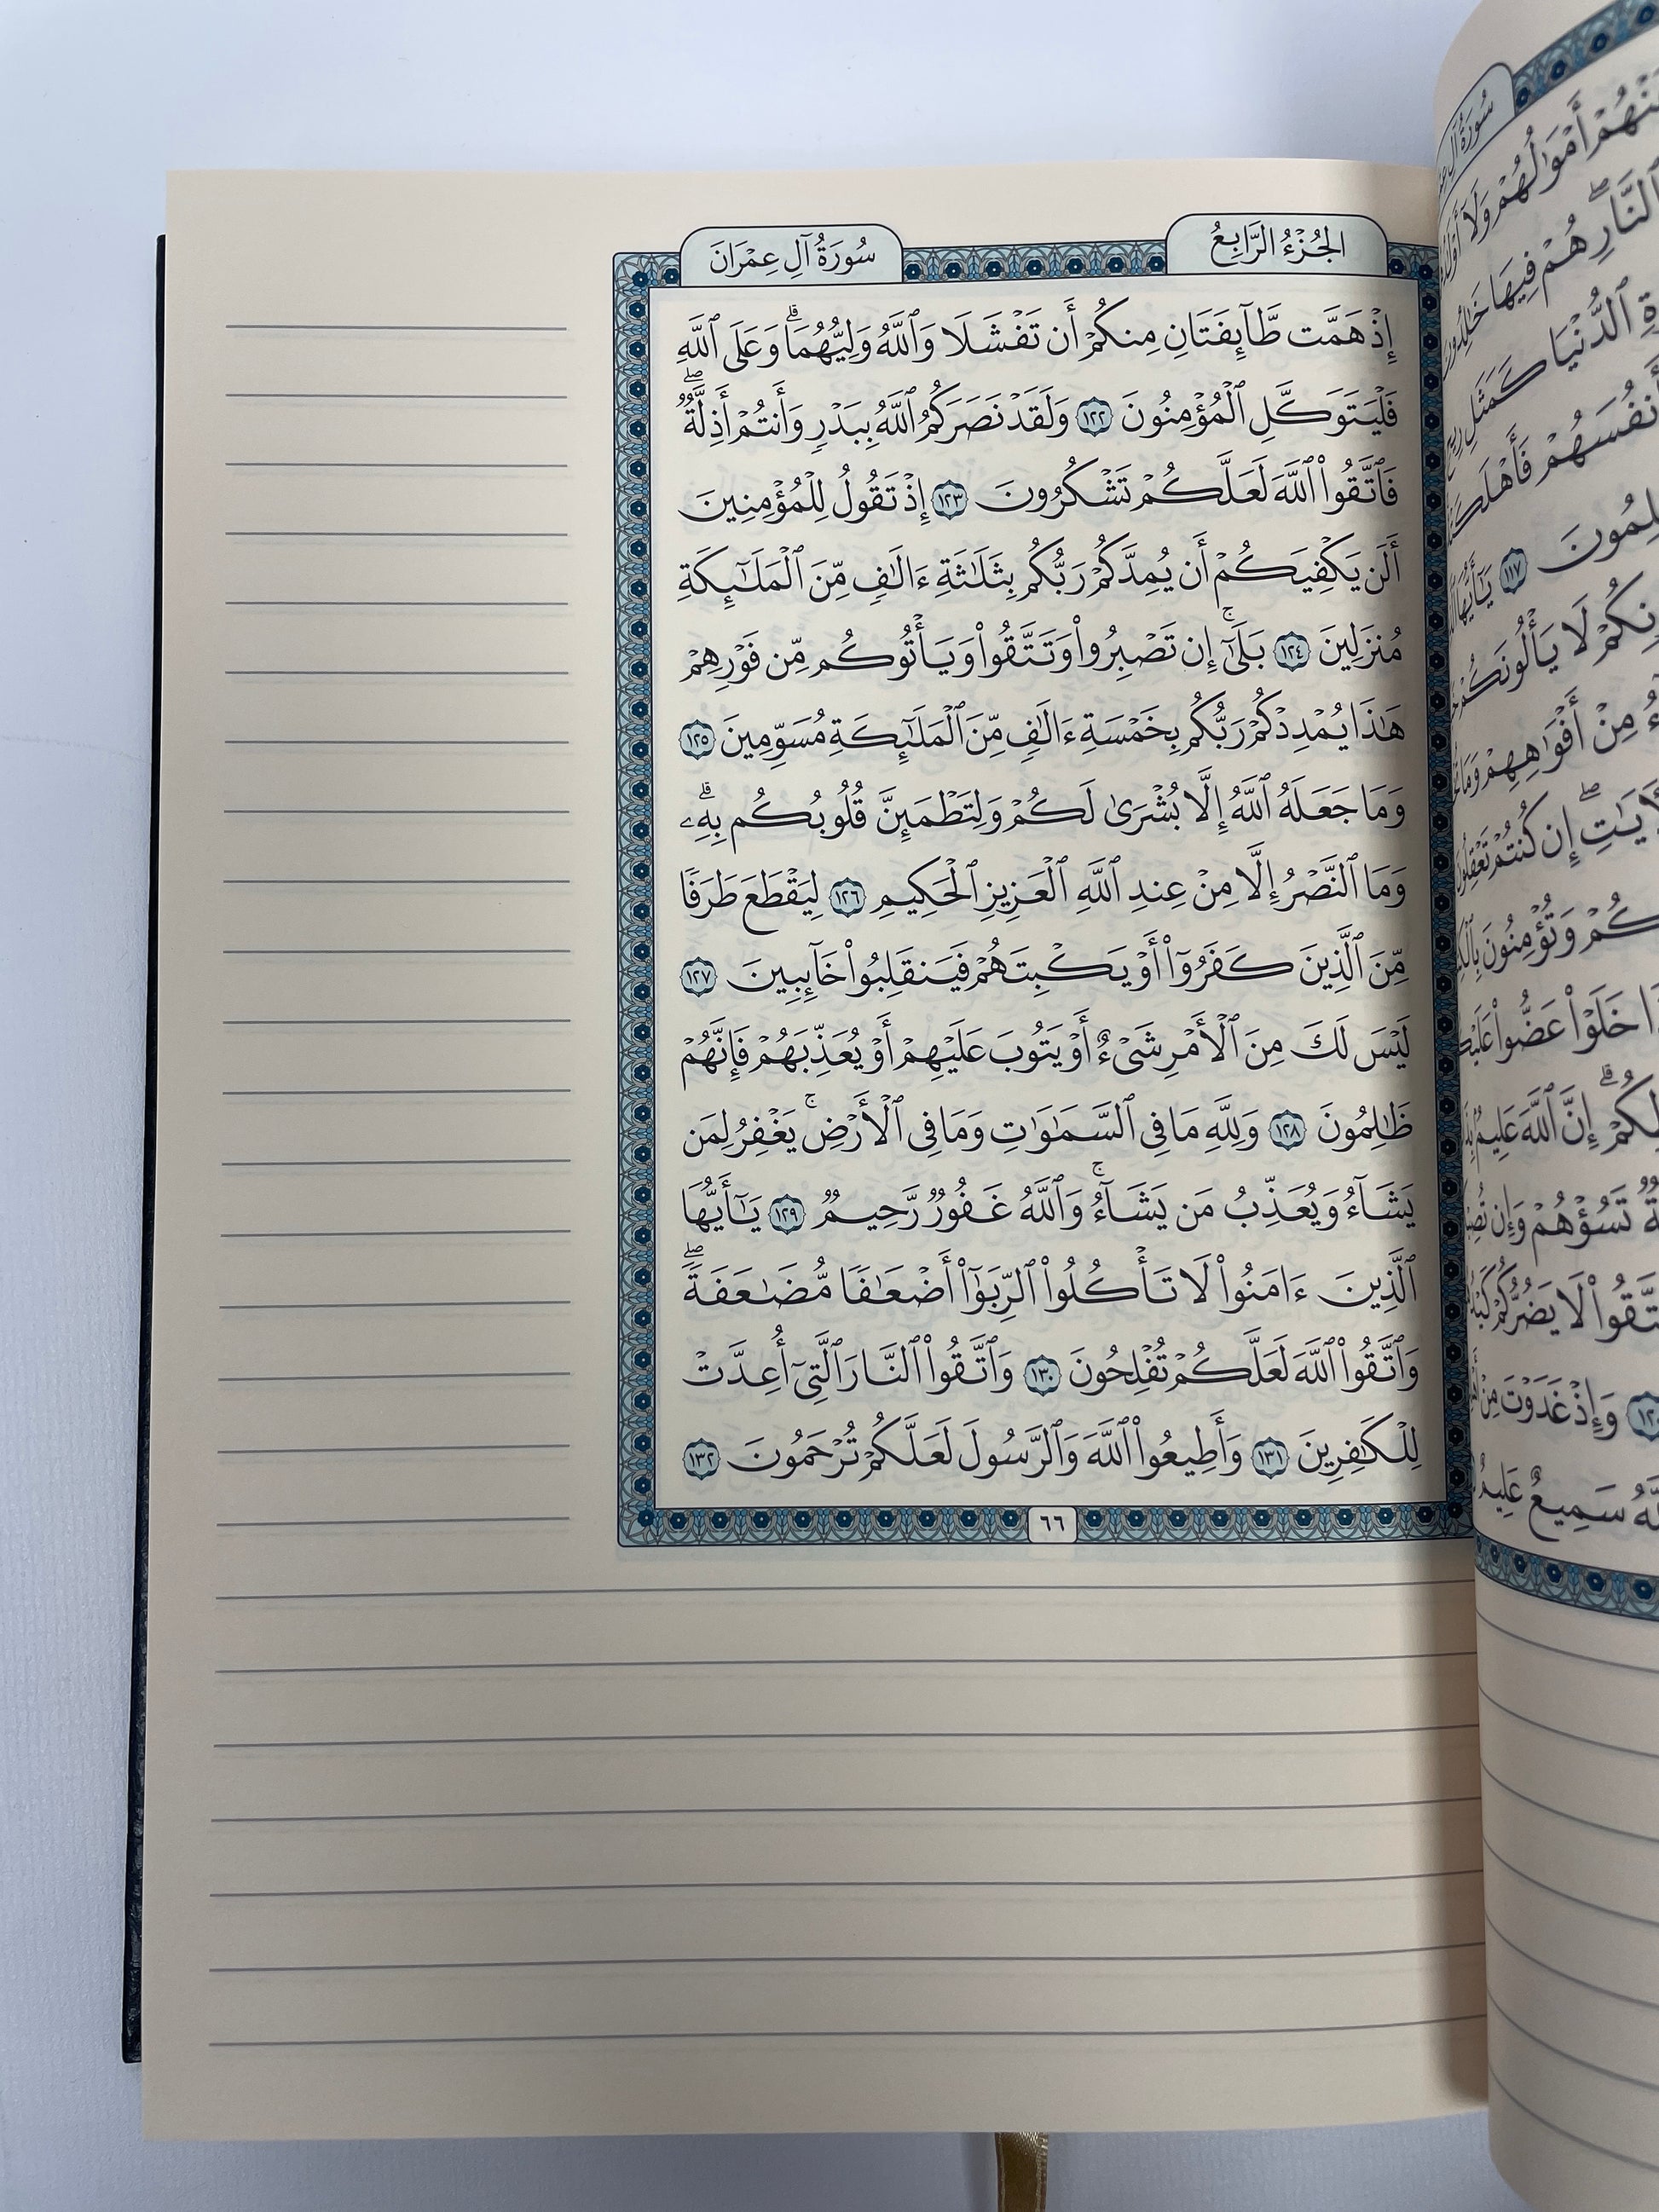 الجُزْءُ الرَّابِعُ
سُورَةُ آلِ عِمْرَانَ
إِذْ هَمَّت طَّآئِفَتَانِ مِنكُمْ أَن تَفْشَلَا وَٱللَّهُ وَلِيُّهُمَاۗ وَعَلَى ٱللَّهِ
فَلْيَتَوَكَّلِ ٱلْمُؤْمِنُونَ ١٢٢ وَلَقَدْ نَصَرَكُمُ ٱللَّهُ بِبَدْرٍ وَأَنتُمْ أَذِلَّةٌۖ
فَٱتَّقُوا۟ ٱللَّهَ لَعَلَّكُمْ تَشْكُرُونَ ١٢٣ إِذْ تَقُولُ لِلْمُؤْمِنِينَ
أَلَن يَكْفِيَكُمْ أَن يُمِدَّكُمْ رَبُّكُم بِثَلَٰثَةِ ءَالَٰفٍ مِّنَ ٱلْمَلَٰٓئِكَةِ
مُنزَلِينَ ١٢٤ بَلَىٰٓۚ إِن تَصْبِرُوا۟ وَتَتَّقُوا۟ وَيَأْتُوكُم مِّن فَوْرِهِمْ
هَٰذَا يُمْدِدْكُمْ رَبُّكُم بِخَمْسَةِ ءَالَٰفٍ مِّنَ ٱلْمَلَٰٓئِكَةِ مُسَوِّمِينَ ١٢٥
وَمَا جَعَلَهُ ٱللَّهُ إِلَّا بُشْرَىٰ لَكُمْ وَلِتَطْمَئِنَّ قُلُوبُكُم بِهِۦۗ
وَمَا ٱلنَّصْرُ إِلَّا مِنْ عِندِ ٱللَّهِ ٱلْعَزِيزِ ٱلْحَكِيمِ ١٢٦ لِيَقْطَعَ طَرَفًا
مِّنَ ٱلَّذِينَ كَفَرُوٓا۟ أَوْ يَكْبِتَهُمْ فَيَنقَلِبُوا۟ خَآئِبِينَ ١٢٧
لَيْسَ لَكَ مِنَ ٱلْأَمْرِ شَىْءٌ أَوْ يَتُوبَ عَلَيْهِمْ أَوْ يُعَذِّبَهُمْ فَإِنَّهُمْ
ظَٰلِمُونَ ١٢٨ وَلِلَّهِ مَا فِى ٱلسَّمَٰوَٰتِ وَمَا فِى ٱلْأَرْضِۚ يَغْفِرُ لِمَن
يَشَآءُ وَيُعَذِّبُ مَن يَشَآءُۚ وَٱللَّهُ غَفُورٌ رَّحِيمٌ ١٢٩ يَٰٓأَيُّهَا
ٱلَّذِينَ ءَامَنُوا۟ لَا تَأْكُلُوا۟ ٱلرِّبَوٰٓا۟ أَضْعَٰفًا مُّضَٰعَفَةًۖ
وَٱتَّقُوا۟ ٱللَّهَ لَعَلَّكُمْ تُفْلِحُونَ ١٣٠ وَٱتَّقُوا۟ ٱلنَّارَ ٱلَّتِىٓ أُعِدَّتْ
لِلْكَٰفِرِينَ ١٣١ وَأَطِيعُوا۟ ٱللَّهَ وَٱلرَّسُولَ لَعَلَّكُمْ تُرْحَمُونَ ١٣٢
٦٦
أَمْوَٰلُهُمْ وَلَآ
ٱلنَّارِۖ هُمْ فِيهَا خَٰلِدُونَ
ٱلدُّنْيَا كَمَثَلِ رِيحٍ
أَنفُسَهُمْ
١١٧
لَا يَأْلُونَكُمْ
مِنْ أَفْوَٰهِهِمْ وَمَا
إِن كُنتُمْ تَعْقِلُونَ
وَتُؤْمِنُونَ
خَلَوْا۟ عَضُّوا۟
إِنَّ ٱللَّهَ عَلِيمٌ
تَسُؤْهُمْ وَإِن
لَا يَضُرُّكُمْ
وَإِذْ غَدَوْتَ مِنْ
سَمِيعٌ عَلِيمٌ